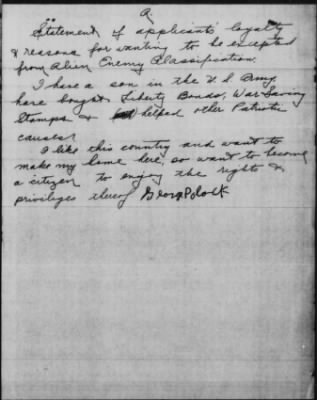 A.
Statement of applicants loyalty
& reasons for wanting to be excepted
from Alien Enemy Classification.
I have a son in the U.S. Army
have bought Liberty Bonds, War Saving
Stamps & helped other Patriotic
causes.
I like this country and want to
make my home here, so want to become
a citizen to enjoy the rights &
privileges thereof